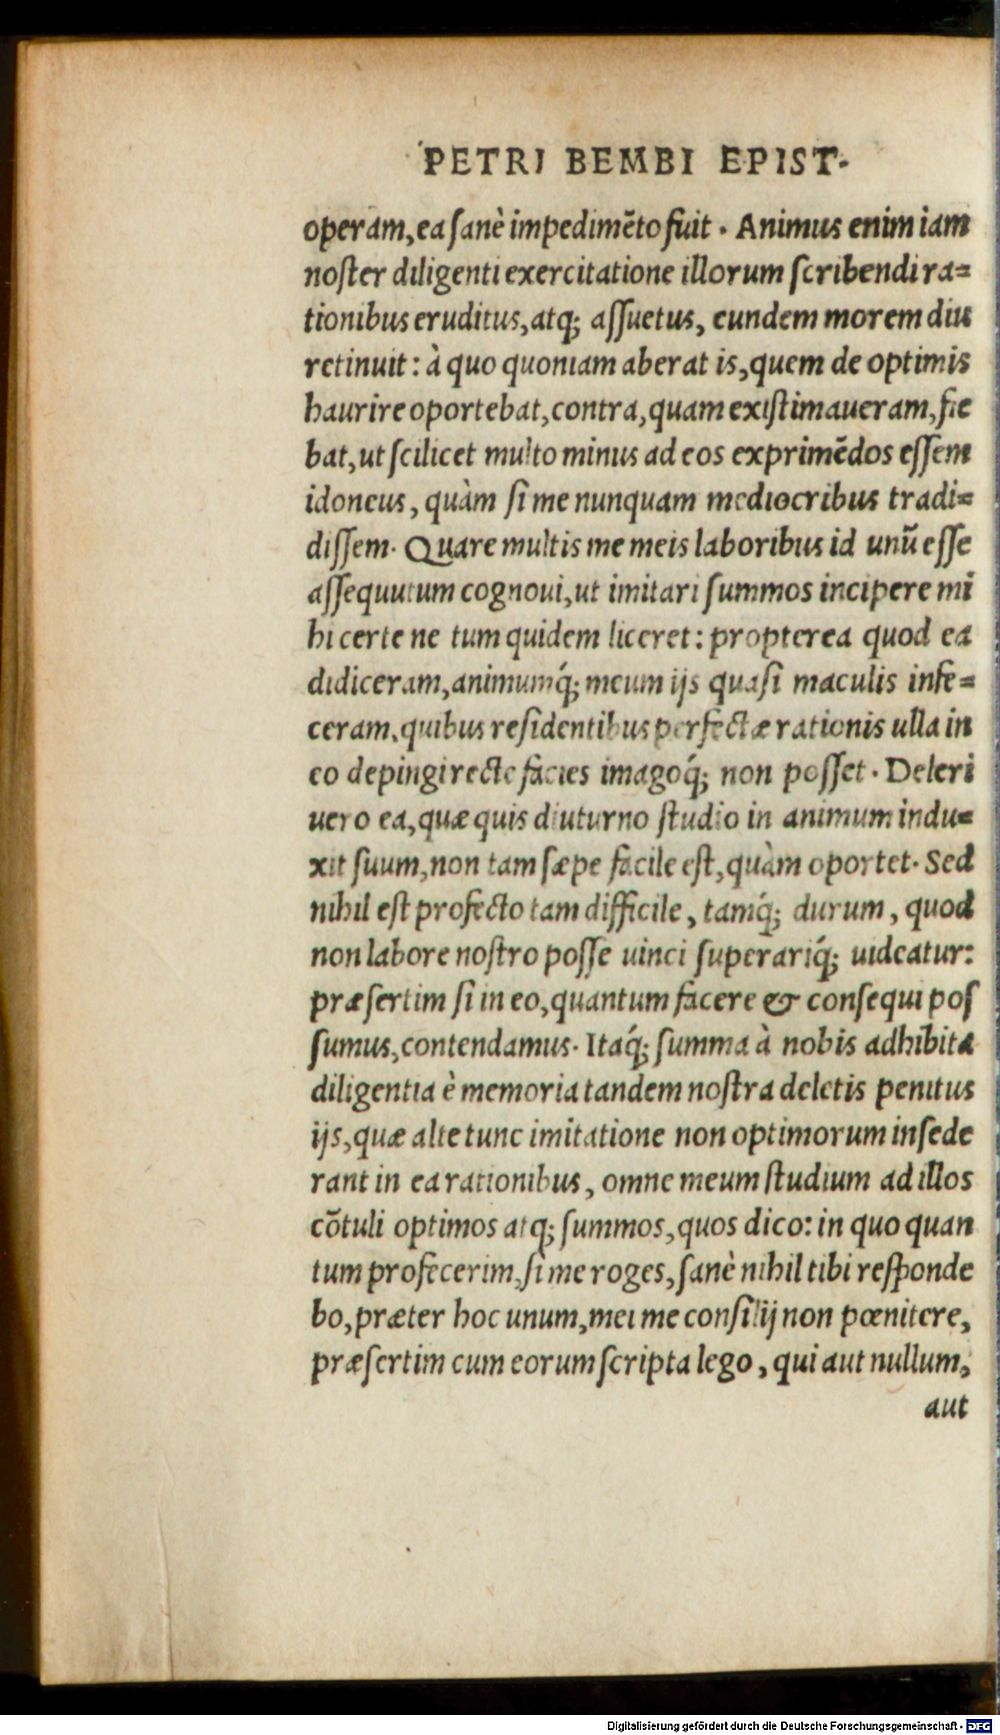 PETRI BEMBI EPIST.
operam, ea sanè impedimẽto fuit. Animus enim iam
noster diligenti exercitatione illorum scribendi ra=
tionibus eruditus, atq; assuetus, eundem morem diu
retinuit: à quo quoniam aberat is, quem de optimis
haurire oportebat, contra, quam existimaueram, fie
bat, ut scilicet multo minus ad eos exprimẽdos essem
idoneus, quàm si me nunquam mediocribus tradi=
dissem. Quare multis me meis laboribus id unũ esse
assequutum cognoui, ut imitari summos incipere mi
hi certe ne tum quidem liceret: propterea quod ea
didiceram, animumq́; meum ijs quasi maculis infe=
ceram, quibus residentibus perfectæ rationis ulla in
eo depingi recte facies imagoq́; non posset. Deleri
uero ea, quæ quis diuturno studio in animum indu=
xit suum, non tam sæpe facile est, quàm oportet. Sed
nihil est profecto tam difficile, tamq́; durum, quod
non labore nostro posse uinci superariq́; uideatur:
præsertim si in eo, quantum facere & consequi pos
sumus, contendamus. Itaq́; summa à nobis adhibita
diligentia è memoria tandem nostra deletis penitus
ijs, quæ alte tunc imitatione non optimorum insede
rant in ea rationibus, omne meum studium ad illos
cõtuli optimos atq; summos, quos dico: in quo quan
tum profecerim, si me roges, sanè nihil tibi responde
bo, præter hoc unum, mei me consilij non pœnitere,
præsertim cum eorum scripta lego, qui aut nullum,
aut
Digitalisierung gefördert durch die Deutsche Forschungsgemeinschaft - DFG